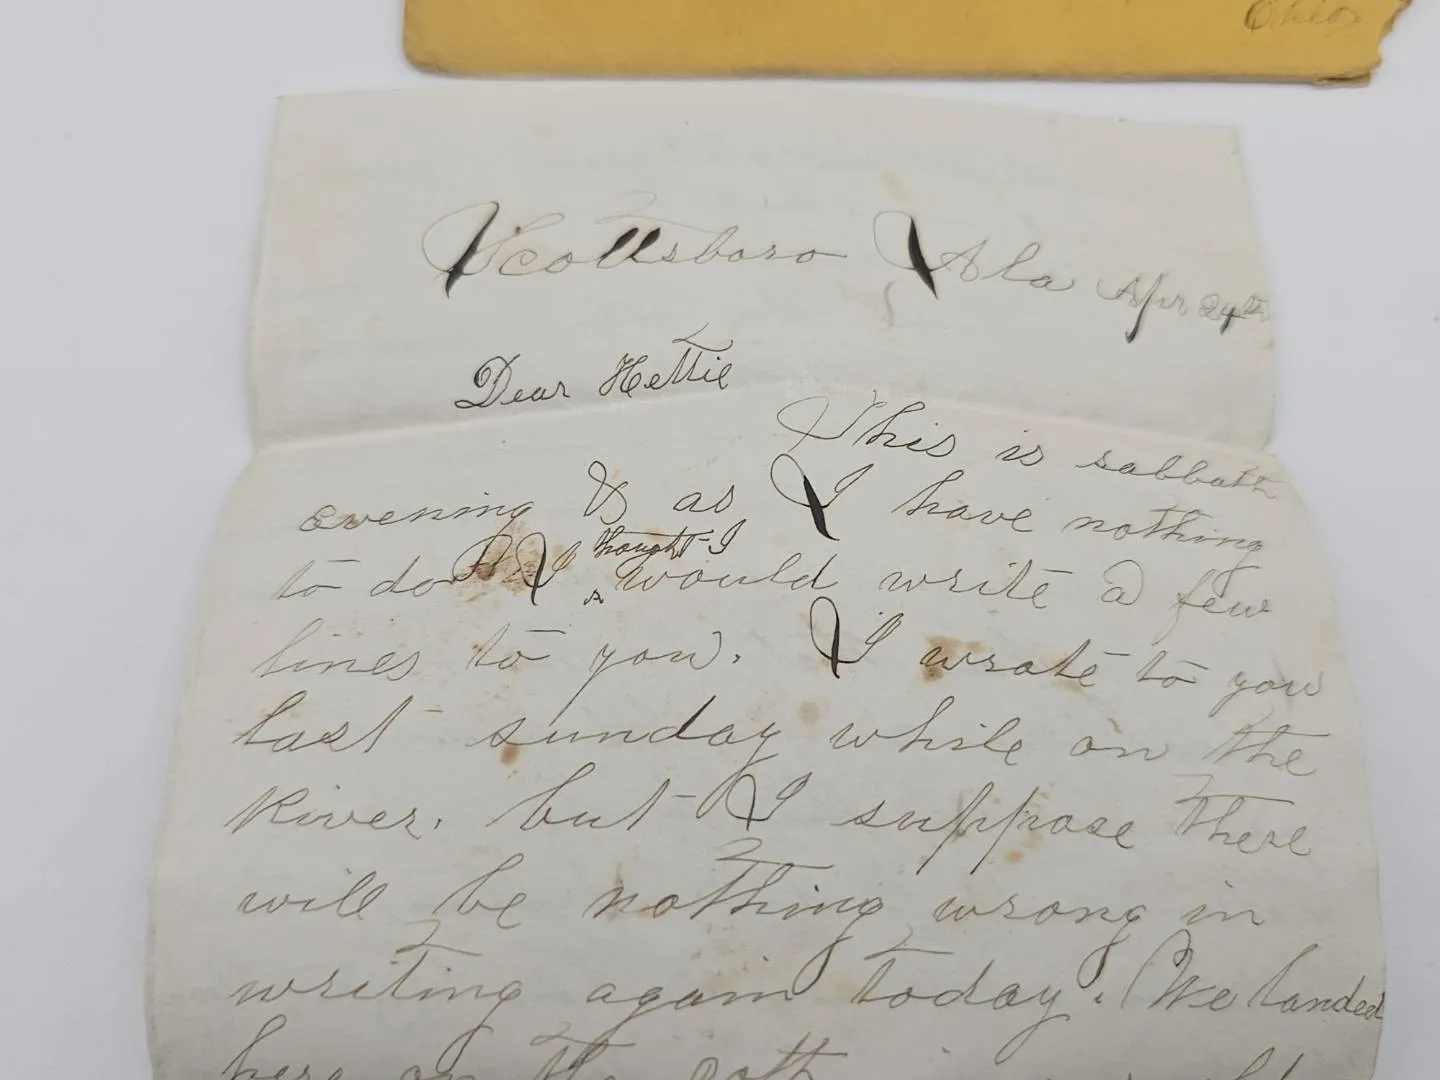 Ohio
Scottsboro Ala Apr 24th
Dear Hettie
This is sabbath
evening & as I have nothing
thought I
to do I would write a few
lines to you. I wrote to you
last sunday while on the
River. but I suppose there
will be nothing wrong in
writing again today. We landed
here on the